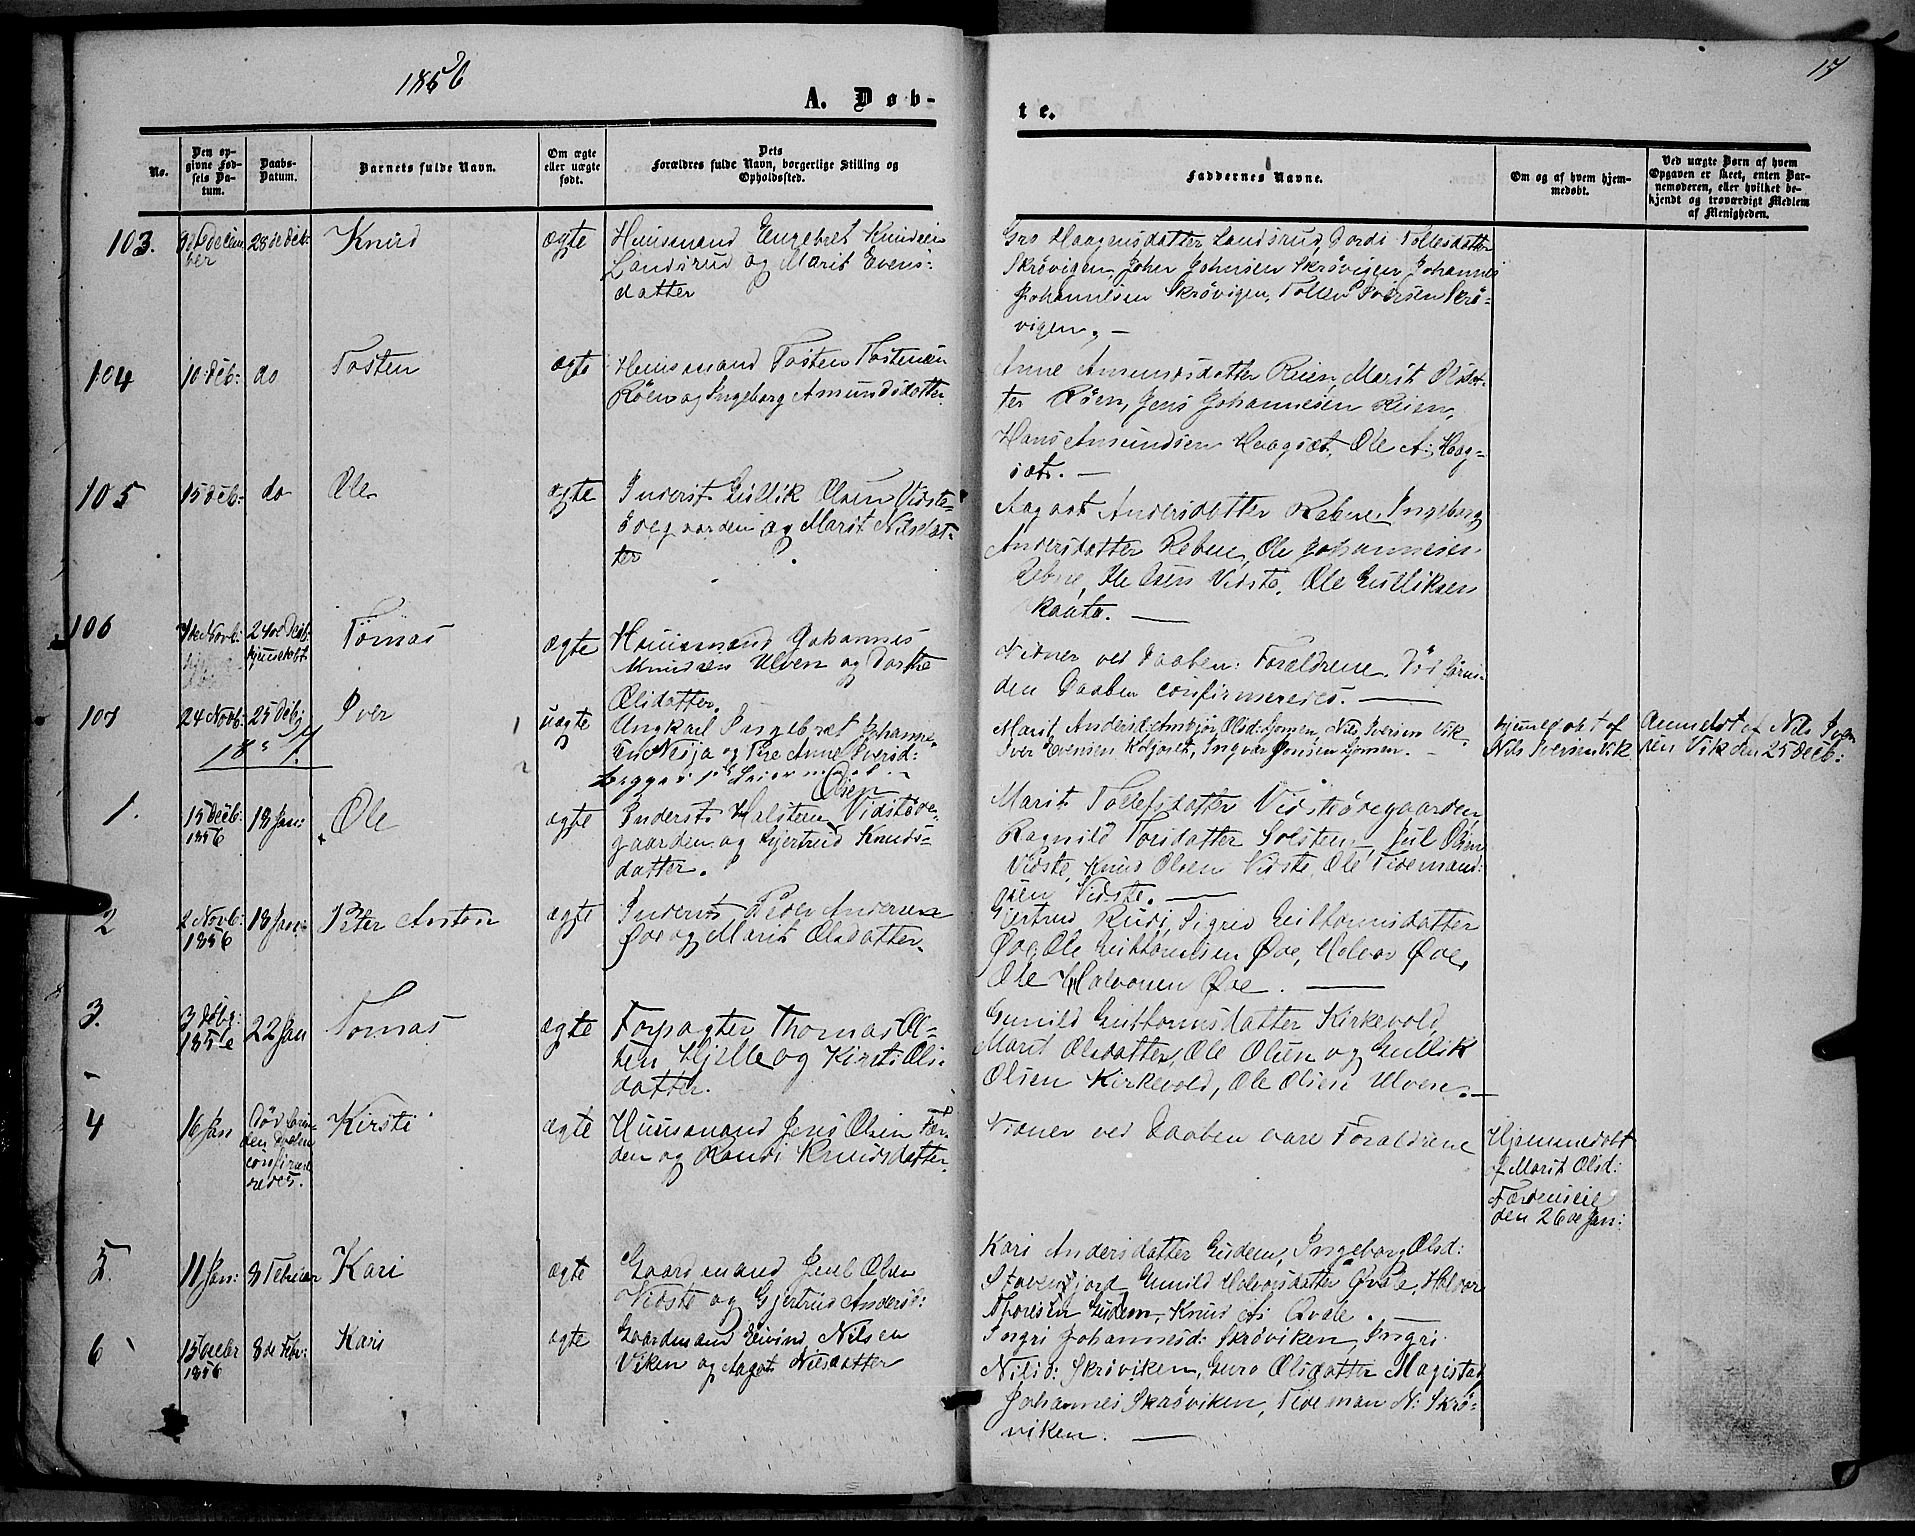 1856
A. Døb-
te.
17
No.
Den op-
givne Fød-
sels Da-
tum.
Daabs-
Datum.
Barnets fulde Navn.
Om ægte
eller uægte
født.
Dets
Forældres fulde Navn, borgerlige Stilling og
Opholdssted.
Faddernes Navne.
Om og af hvem hjem-
medøbt.
Ved uægte Børn af hvem
Opgaven er skeet, enten Bar-
nemoderen, eller hvilket be-
kjendt og troværdigt Medlem
af Menigheden.
103.
28de Deb:
Knud
ægte
Huusmand Engebret Knudsen
Landsrud og Marit Evens-
datter
Gro Haagensdatter Landsrud, Dordi Tollesdatter
Skrøvigen, Joher Johnsen Skrøvigen Johannes
Johannesen Skrøvigen, Tollev Iversen Skrø-
vigen. —
104
10 Deb:
do
Tosten
ægte
Huusmand Tosten Tostensen
Røen og Ingeborg Amundsdatter
Anne Amundsdatter Reien, Marit Olsdat-
ter Røen, Jens Johannesen Reien,
Hans Amundsen Haagsæt, Ole A: Haag-
sæt. —
105
15 Deb:
do
Ole
ægte
Inderst Gullik Olsen Vidste-
øvegaarden og Marit Nilsdat-
ter
Aagot Andersdatter Rebne, Ingeborg
Andersdatter Rebne, Ole Johannesen
Rebne, Ole Vidste, Ole Gulliksen
106
24de Deb:
Tomas
ægte
Huusmand Johannes
Ulven og Dorthe
Olsdatter.
Vidner ved Daaben: Forældrene. Død førin-
den Daaben confirmeredes. —
107
24 Novb:
25 Deb:
Iver
uægte
Ungkarl Ingebret Johanne-
sen og Pige Anne Iversd:
Marit Andersd: Olsd: Nils Iversen Vik.
Iver Evensen Ingvar Jonsen —
hjemedøbt af
Nils Iversen Vik.
Anmeldt af Nils Iver-
sen Vik den 25 Deeb:
1857.
1.
15 Deeb:
1856
18 Jan:
Ole
ægte
Olsen
Inderst Halsten Vidsteøve-
gaarden og Gjertrud Knuds-
datter.
Marit Tollefsdatter Vidsteøvegaarden
Ragnild Toresdatter Solsten, Jul Olsen
Vidste, Knud Olsen Vidste, Ole Tidemand-
sen Vidste. —
2
2 Novb:
1856
18 Jan:
Peter Anton
ægte
Inderst Peder Andersen
Øve og Marit Olsdatter.
Gjertrud Rudi, Sigrid Guttormsdatter
Øve, Ole Guttormsen Øve, Halvor Øve,
Ole Halvorsen Øve. —
3.
3 Debg:
1856
22 Jan
Tomas
ægte
Forpagter Thomas Ol-
sen Hjelle og Kirsti Ols-
datter.
Gunild Guttormsdatter Kirkevold,
Marit Olsdatter, Ole Olsen og Gullik
Olsen Kirkevold, Ole Olsen Ulven. —
4
16 Jan
Død førin-
den Daaben
confirme-
redes.
Kirsti
ægte
Huusmand Jens Olsen Fær-
den og Randi Knudsdatter.
Vidner ved Daaben vare Forældrene
Hjemmedøbt
af Marit Olsd:
Færdenseie
den 26de Jan:
5.
11 Jan:
8 Februar
Kari
ægte
Gaardmand Juel Olsen
Vidste og Gjertrud Andersd:
Kari Andersdatter Gudem, Ingeborg Olsd:
Stavenfjord, Gunild Halvorsdatter Qvale, Halvor
Thoresen Gudem, Knud A: Qvale. —
6
15 Deebr
1856
8de Febr:
Kari
ægte
Gaardmand Eivind Nilsen
Viken og Aagot Nilsdatter
Ingri Johannesd: Skrøviken, Ingri
Nilsd: Skrøviken, Guro Olsdatter Magistad,
Johannes Skrøviken, Tideman N: Skrø-
viken. —